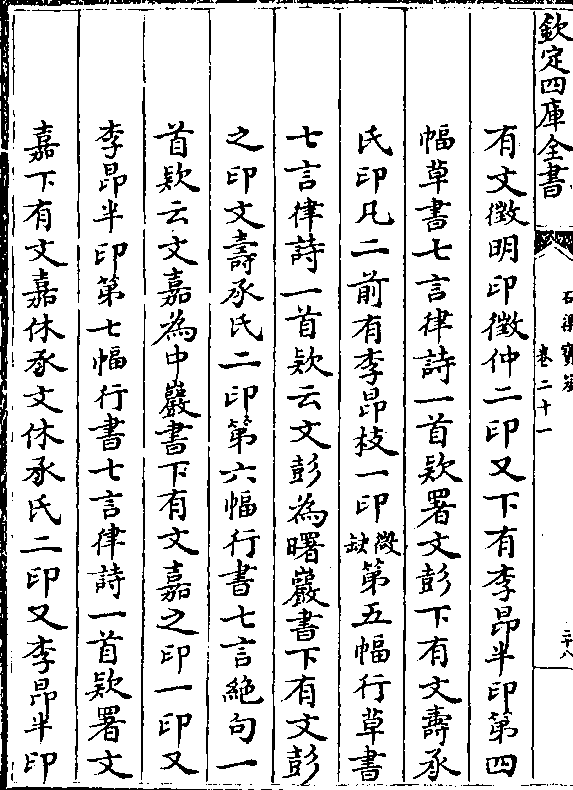 欽定四庫全書
石渠寶笈
卷二十一
三十八
有文徵明印徵仲二印又下有李昂半印第四
幅草書七言律詩一首欵署文彭下有文壽承
氏印凡二前有李昂枝一印微缺第五幅行草書
七言律詩一首欵云文彭為曙巖書下有文彭
之印文壽承氏二印第六幅行書七言絶句一
首欵云文嘉為中巖書下有文嘉之印一印又
李昂半印第七幅行書七言律詩一首欵署文
嘉下有文嘉休承文休承氏二印又李昂半印